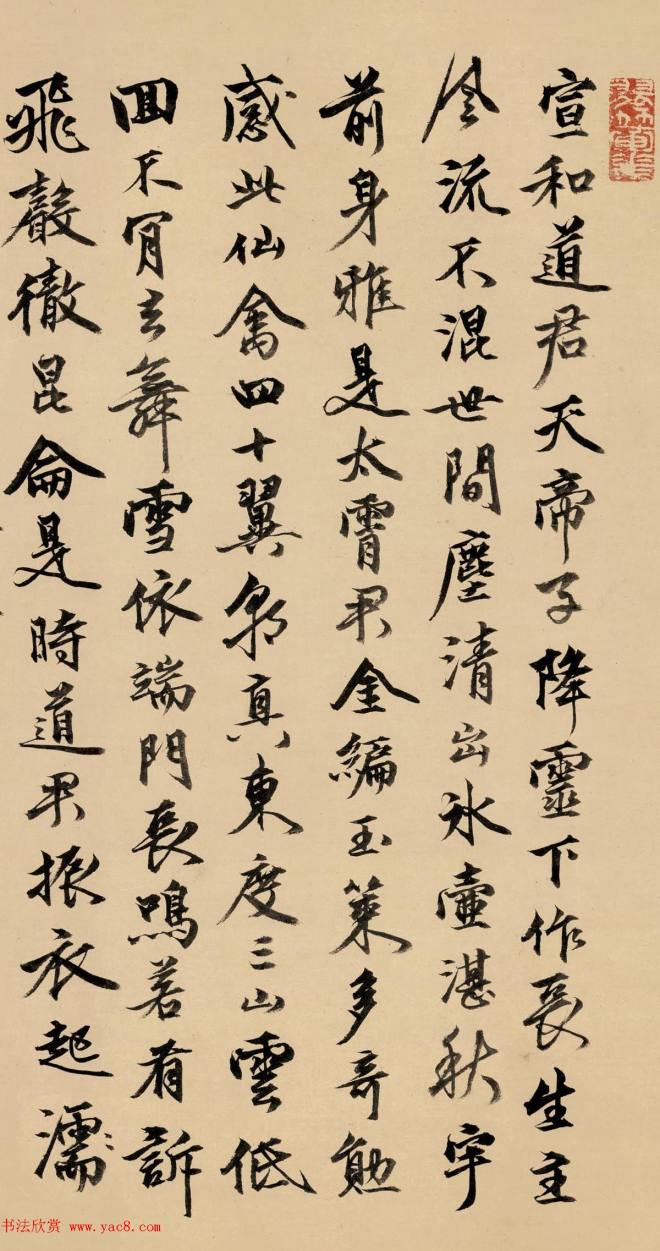 宣和道君天帝子降靈下作長生主
風流不混世間塵清出冰壺湛秋宇
前身雅是太霄君金編玉策多奇勲
感此仙禽四十翼朝真東度三山雲低
回不肯去舞雪依端門長鳴若有訴
飛聲徹昆侖是時道君振衣起濡
书法欣赏 www.yac8.com